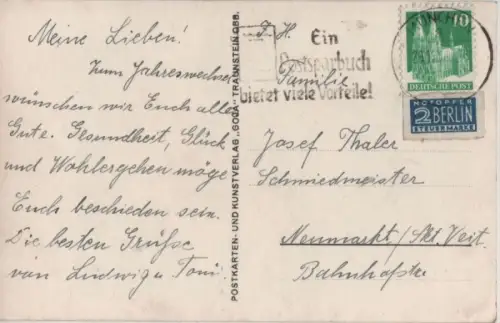 Meine Lieben!
Zum Jahreswechsel
wünschen wir Euch alles
Gute. Gesundheit, Glück
und Wohlergehen möge
Euch beschieden sein.
Die besten Grüße
von Ludwig u Toni.
POSTKARTEN- UND KUNSTVERLAG „GODA“ TRAUNSTEIN OBB.
Ein
Postsparbuch
bietet viele Vorteile!
MÜNCHEN
10
DEUTSCHE POST
NOTOPFER
2 BERLIN
STEUERMARKE
Familie
Josef Thaler
Schmiedmeister
Neumarkt/Skt. Veit.
Bahnhofstr.